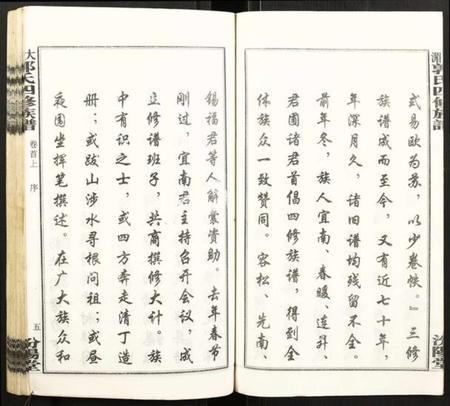 灌郭氏四修族谱
式易欧为苏，以少卷帙。』三修
族谱成而至今，又有近七十年，
年深月久，诸旧谱均残留不全。
前年冬，族人宜南、春暖、连升、
君圃诸君首倡四修族谱，得到全
体族众一致赞同。容松、先南、
汾陽堂
大郭氏四修族譜
卷首上 序
五
汾陽堂
锡福君等人解囊资助。去年春节
刚过，宜南君主持召开会议，成
立修谱班子，共商撰修大计。族
中有识之士，或四方奔走清丁造
册；或跋山涉水寻根问祖；或昼
夜围坐挥笔撰述。在广大族众和